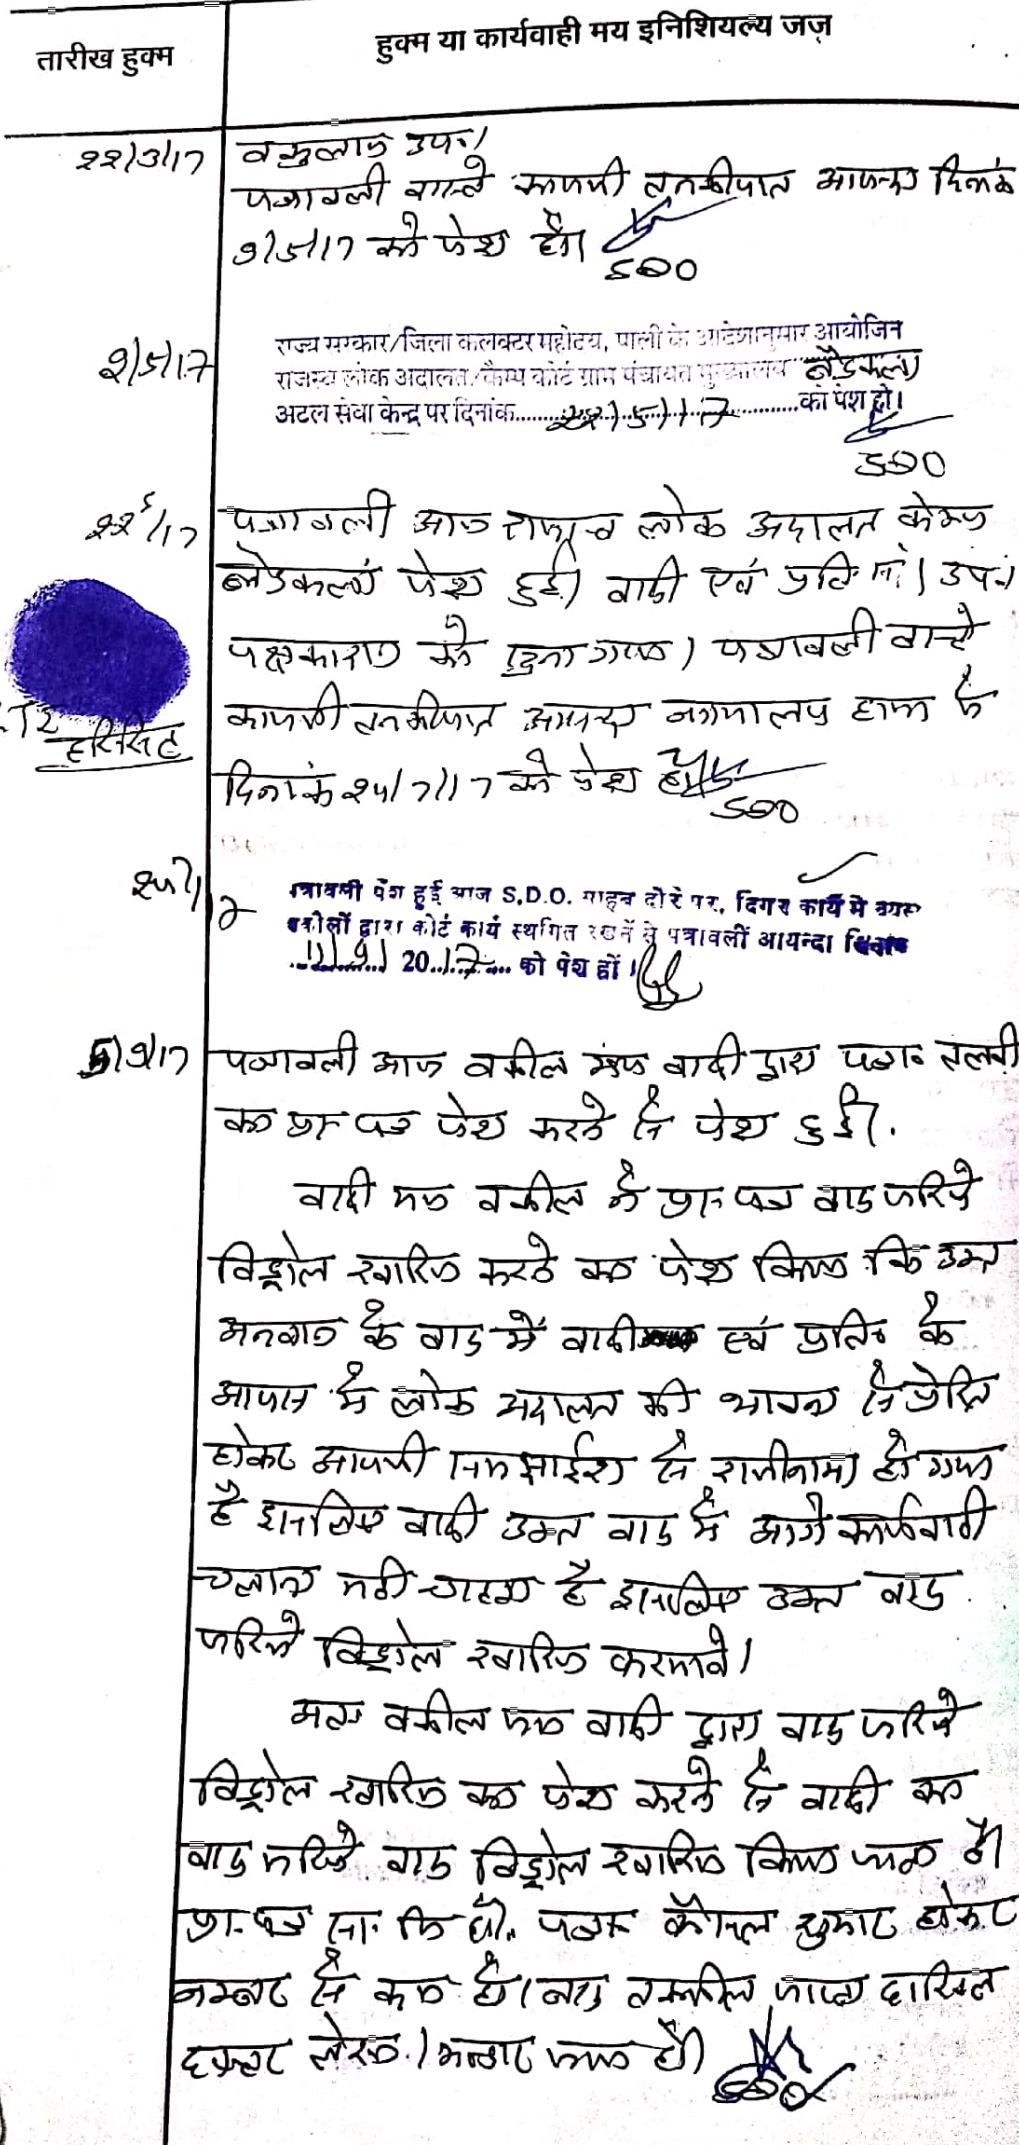 तारीख हुक्म
हुक्म या कार्यवाही मय इनिशियल्य जज़
22/3/17
वकुलाय उप०।
पत्रावली वास्ते कायमी तनकीयात आयन्दा दिनांक
9/5/17 को पेश हो।
SDO
9/5/17
राज्य सरकार/जिला कलक्टर महोदय, पाली के आदेशानुसार आयोजित
राजस्व लोक अदालत/कैम्प कोर्ट ग्राम पंचायत मुख्यालय
अटल सेवा केन्द्र पर दिनांक 22/5/17 को पेश हो।
SDO
22/5/17
पत्रावली आज राजस्व लोक अदालत केम्प
पेश हुई। वादी एवं प्रति उप०।
पक्षकारान को सुना गया। पत्रावली वास्ते
कायमी तनकीयात आयन्दा न्यायालय हाजा में
दिनांक 25/7/17 को पेश हो।
SDO
हरिसिंह
25/7/17
पत्रावली पेश हुई आज S.D.O. साहब दौरे पर, दिगर कार्य मे व्यस्त
वकीलों द्वारा कोर्ट कार्य स्थगित रखनें से पत्रावलीं आयन्दा दिनांक
11/9/2017 को पेश हों।
5/9/17
पत्रावली आज वकील मय वादी द्वारा पत्रा० तलबी
का प्रा० पत्र पेश करने से पेश हुई।
वादी मय वकील ने प्रा० पत्र वाद जरिये
विड्रोल खारिज करने का पेश किया कि उक्त
अनवान के वाद में वादी एवं प्रति० के
आपस में लोक अदालत की भावना से प्रेरित
होकर आपसी समझाईश से राजीनामा हो गया
है इसलिए वादी उक्त वाद में आगे कार्यवाही
चलाना नही चाहता है इसलिए उक्त वाद
जरिये विड्रोल खारिज करमावे।
अतः वकील मय वादी द्वारा वाद जरिये
विड्रोल खारिज का पेश करने से वादी का
वाद जरिये वाद विड्रोल खारिज किया जाता है।
प्रा० पत्र शा० मि० हो। पत्रा० फैसल शुमार होकर
नम्बर से कम हो। बाद तकमील जाप्ता दाखिल
दफ्तर होवे।